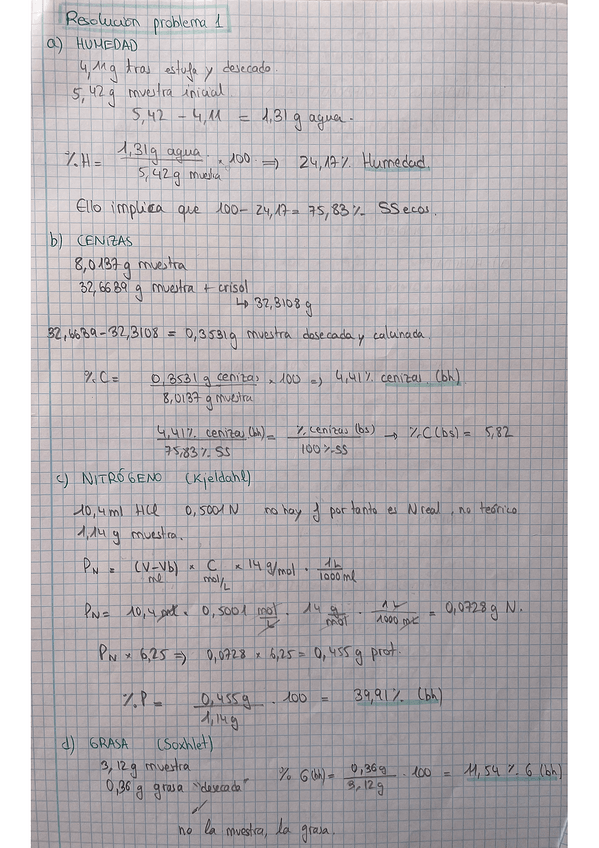 Resolución problema 1
a) HUMEDAD
4,11g tras estufa y desecado
5,42 g muestra inicial
5,42 - 4,11 = 1,31 g agua.
%H = 1,31g agua / 5,42g muestra × 100 ⇒ 24,17% Humedad
Ello implica que 100 - 24,17 = 75,83% SSecos.
b) CENIZAS
8,0137g muestra
32,6639 g muestra + crisol
↳ 32,3108 g
32,6639 - 32,3108 = 0,3531g muestra desecada y calcinada.
%C = 0,3531 g cenizas / 8,0137g muestra × 100 ⇒ 4,41% cenizas (bh)
4,41% cenizas (bh) / 75,83% SS = % cenizas (bs) / 100% SS → %C(bs) = 5,82
c) NITRÓGENO (Kjeldahl)
10,4ml HCl 0,5001 N no hay f por tanto es N real, no teórico
1,14 g muestra.
PN = (V-Vb) ml × C mol/L × 14 g/mol · 1L / 1000 ml
PN = 10,4 ml × 0,5001 mol/L · 14 g/mol · 1L / 1000 ml = 0,0728 g N.
PN × 6,25 ⇒ 0,0728 × 6,25 = 0,455 g prot.
%P = 0,455g / 1,14g · 100 = 39,91% (bh)
d) GRASA (Soxhlet)
3,12g muestra
0,36 g grasa "desecada"
% G(bh) = 0,36g / 3,12g · 100 = 11,54 % G (bh)
no la muestra, la grasa.